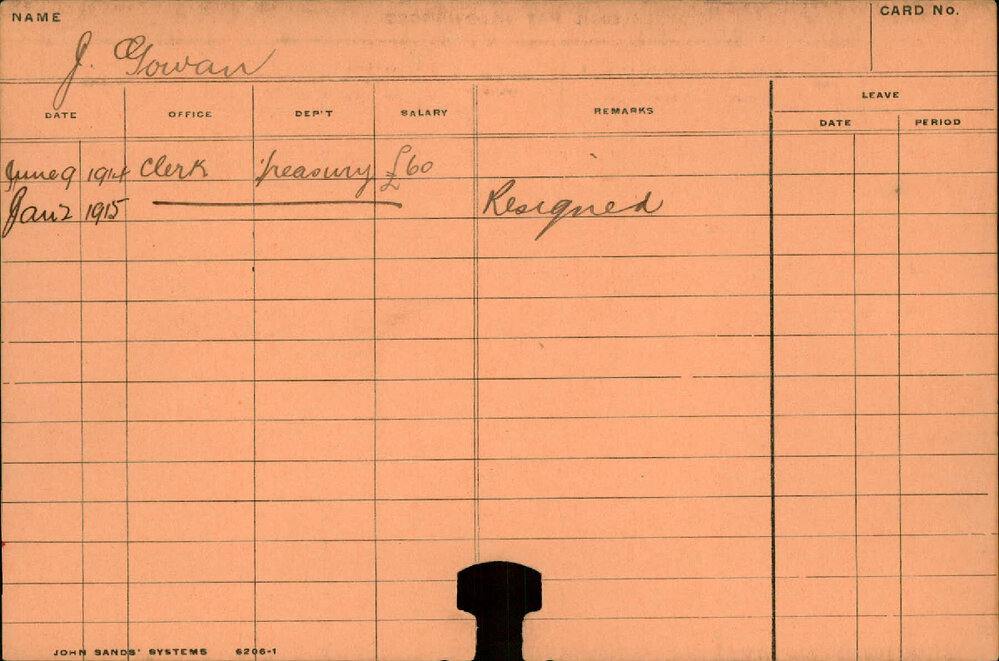 NAME
CARD No.
J. Gowan
LEAVE
DATE OFFICE DEP'T SALARY REMARKS DATE PERIOD
June 9 1914 Clerk Treasury £60
Jan 2 1915 Resigned
JOHN SANDS' SYSTEMS 6206-1